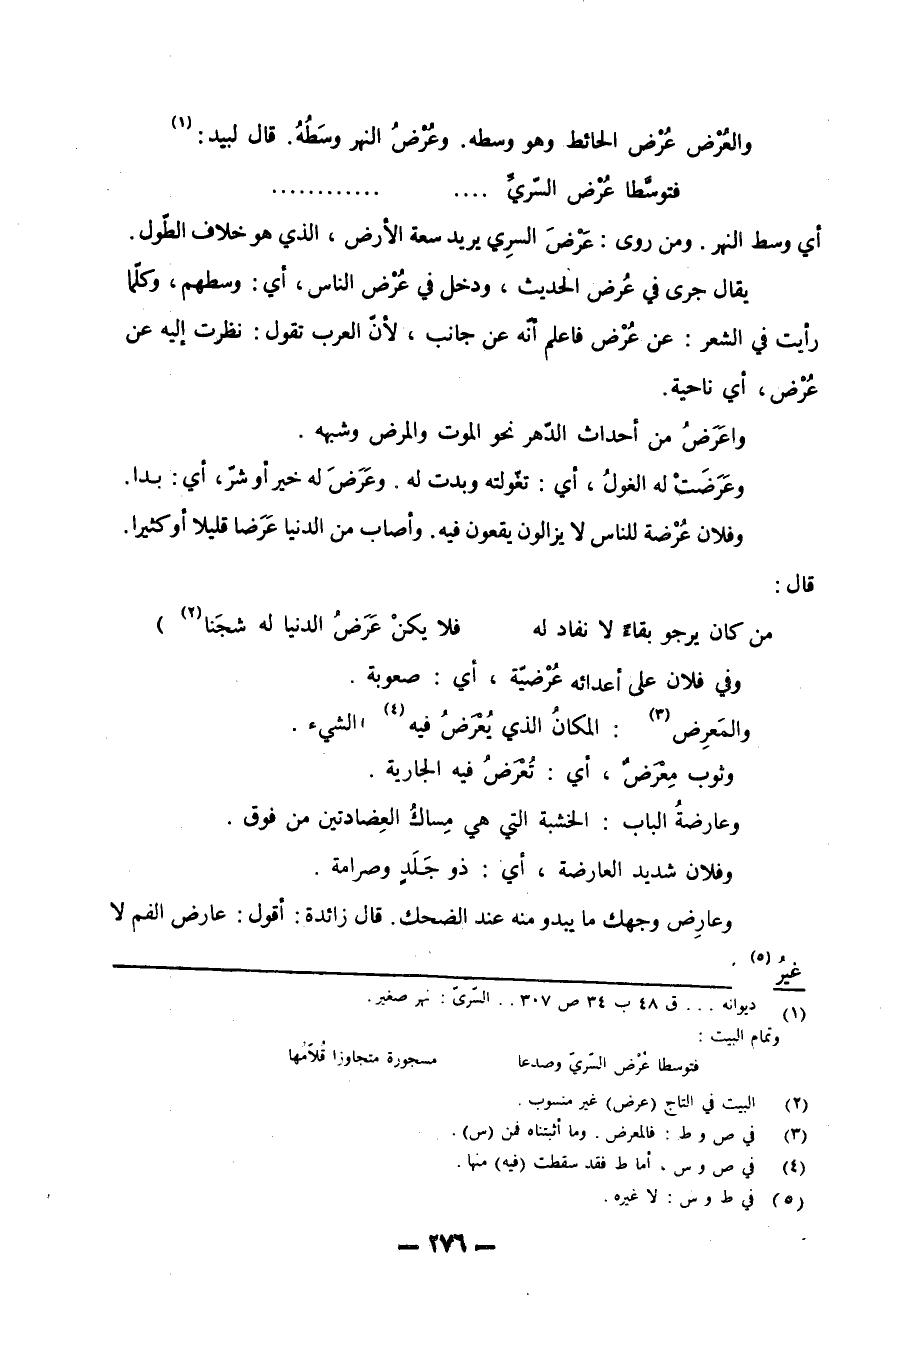 والعُرْض عُرْض الحائط وهو وسطه. وعُرْضُ النهر وسَطُهُ. قال لبيد: (١)
فتوسَّطا عُرْض السّريِّ .... ............
أي وسط النهر . ومن روى : عَرْضَ السرِي يريد سعة الأرض ، الذي هو خلاف الطّول .
يقال جرى في عُرض الحديث ، ودخل في عُرْض الناس ، أي: وسطهم ، وكلّما
رأيت في الشعر : عن عُرْض فاعلم أنّه عن جانب ، لأنّ العرب تقول : نظرت إليه عن
عُرْض ، أي ناحية.
واعَرَضُ من أحداث الدّهر نحو الموت والمرض وشبهه .
وعَرَضَتْ له الغولُ ، أي : تغّولته وبدت له . وعَرَضَ له خير أو شرّ، أي: بدا.
وفلان عُرْضة للناس لا يزالون يقعون فيه. وأصاب من الدنيا عَرَضا قليلا أو كثيرا.
قال :
من كان يرجو بقاءً لا نفاد له فلا يكنْ عَرَضُ الدنيا له شجَنا(٢) )
وفي فلان على أعدائه عُرْضيّة ، أي : صعوبة .
والمَعرِض(٣) : المكانُ الذي يُعْرَضُ فيه(٤) الشيء .
وثوب مِعْرَضٌ ، أي : تُعْرَضُ فيه الجارية .
وعارضةُ الباب : الخشبة التي هي مِساكُ العِضادتين من فوق .
وفلان شديد العارضة ، أي : ذو جَلَدٍ وصرامة .
وعارِض وجهك ما يبدو منه عند الضحك. قال زائدة: أقول: عارض الفم لا
غيرُ (٥) .
(١) ديوانه ... ق ٤٨ ب ٣٤ ص ٣٠٧ .. السّريّ : نهر صغير.
وتمام البيت :
فتوسطا عُرْض السّريّ وصدعا مسجورة متجاوزا قُلاّمُها
(٢) البيت في التاج (عرض) غير منسوب .
(٣) في ص و ط : فالمعرض . وما أثبتناه فمن (س) .
(٤) في ص و س ، أما ط فقد سقطت (فيه) منها .
(٥) في ط و س : لا غيره .
— ٢٧٦ —